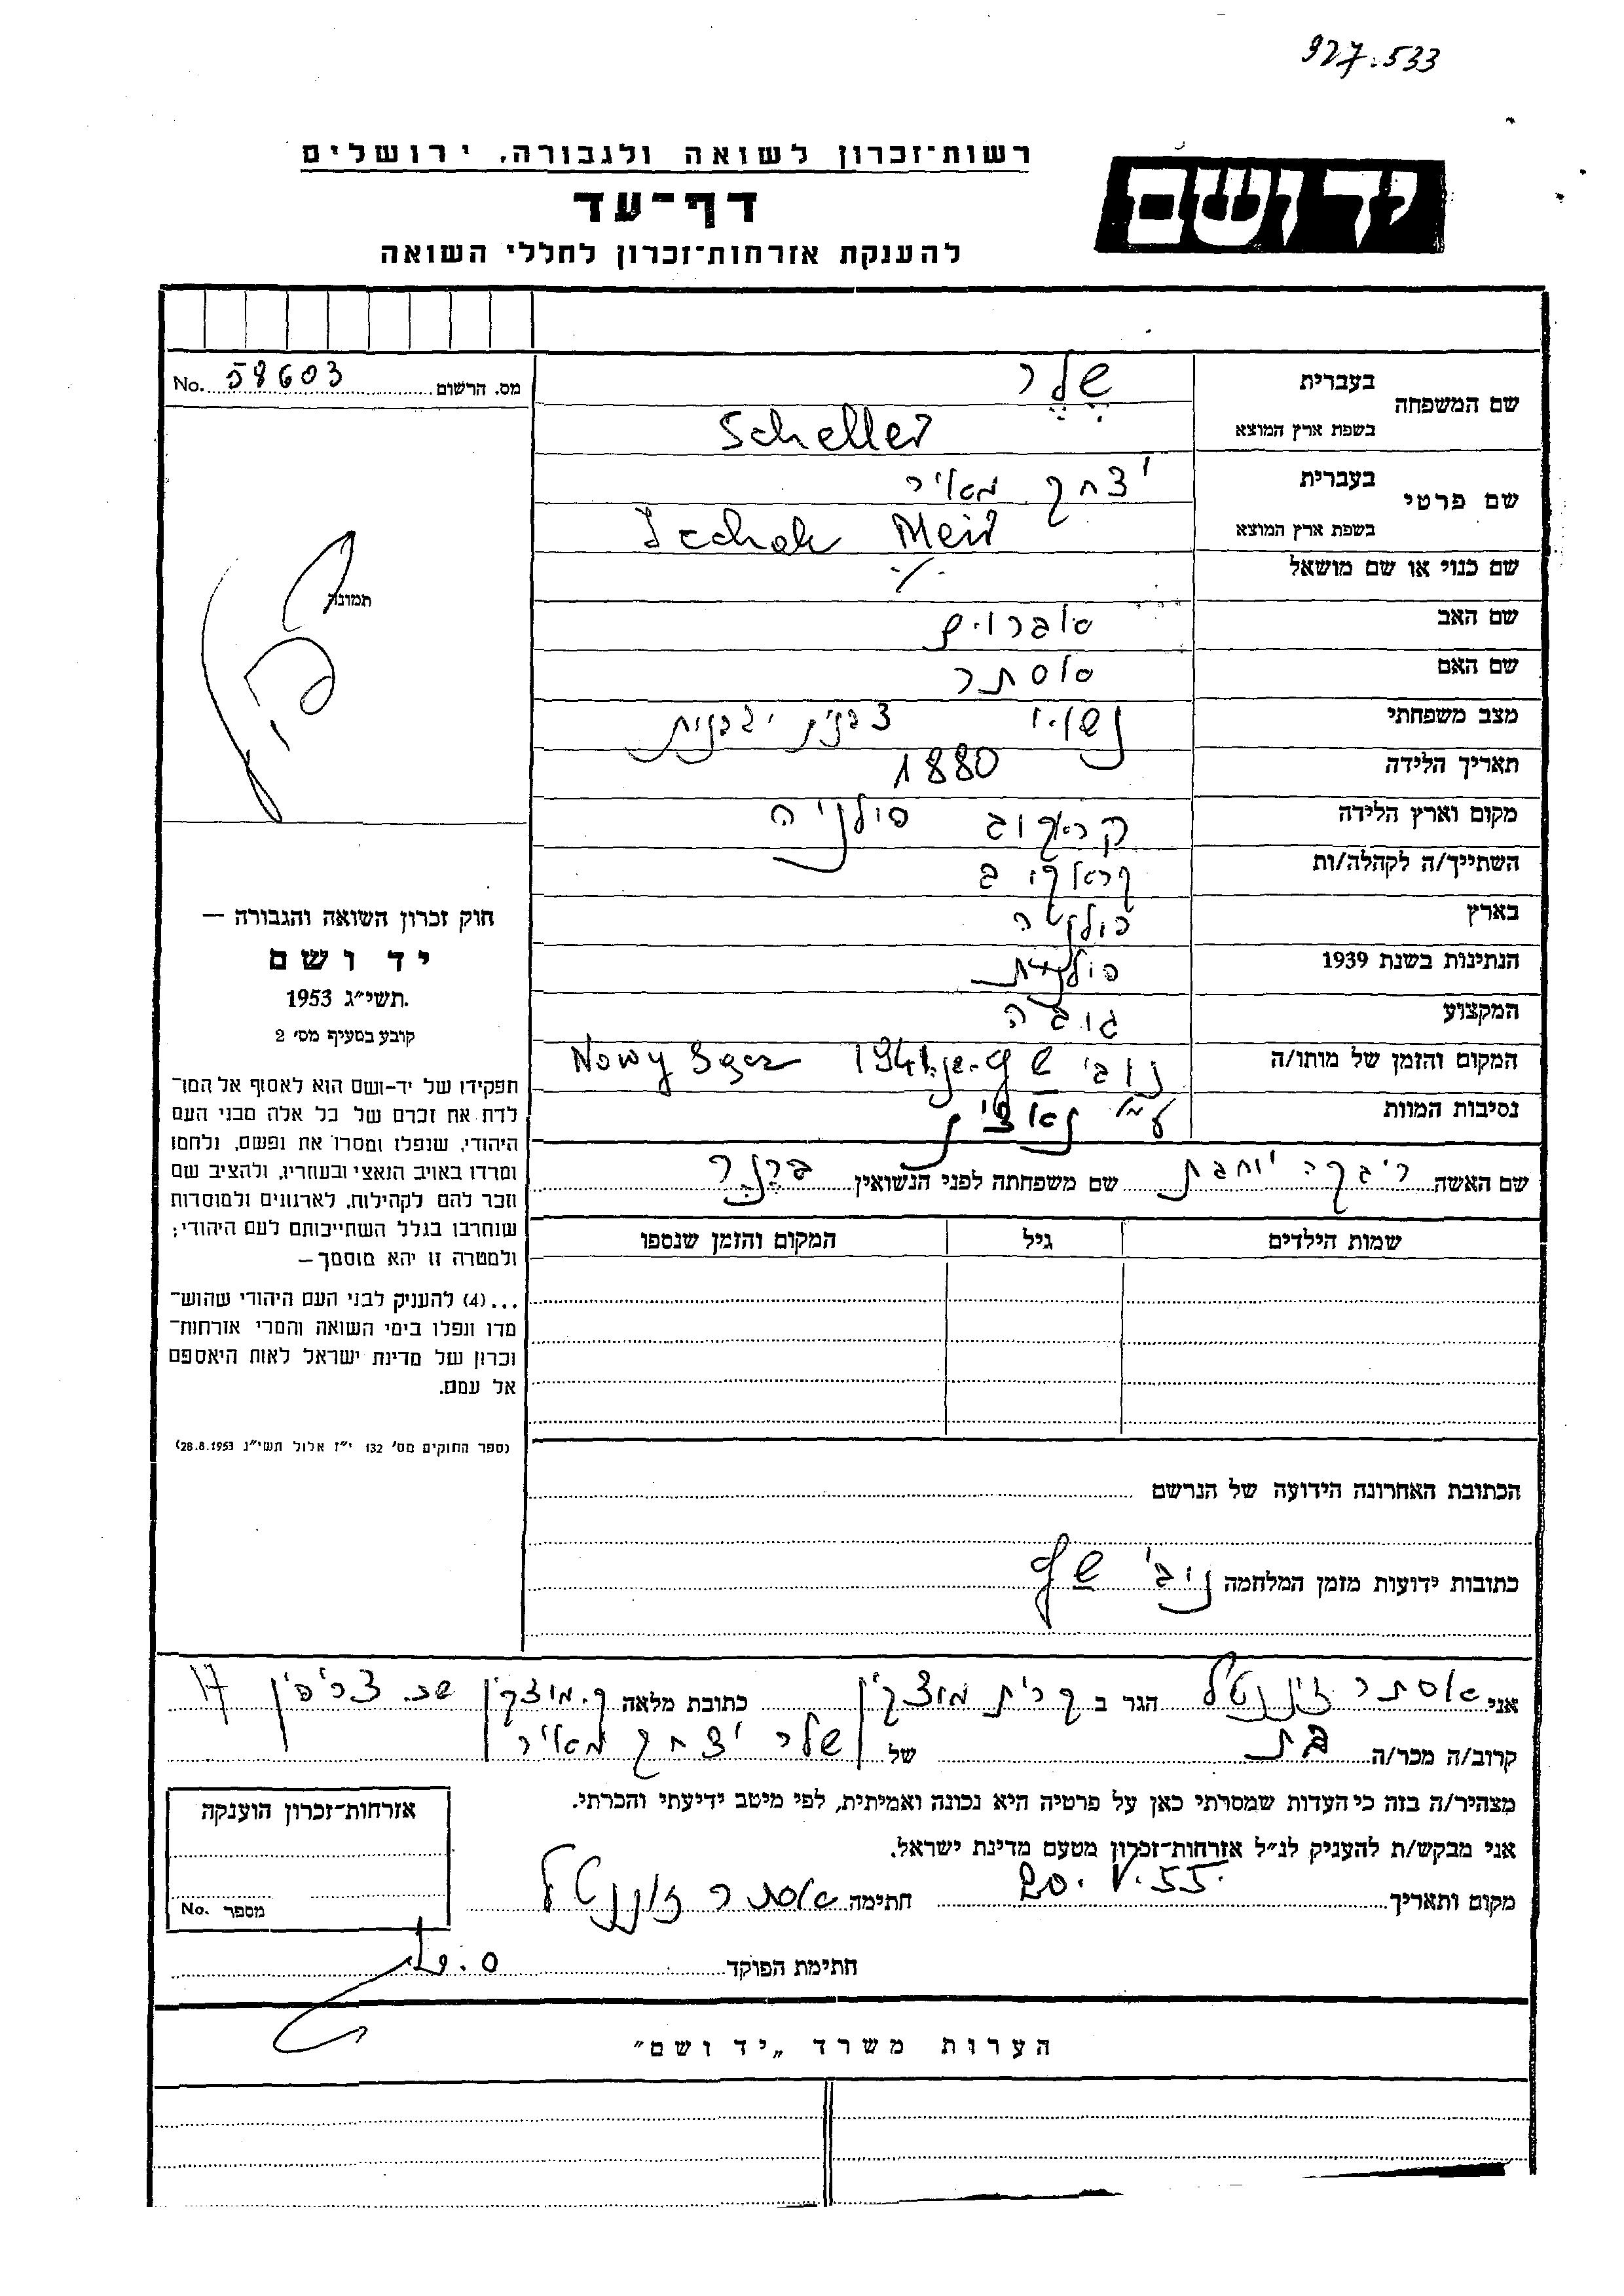 927.533
רשות־זכרון לשואה ולגבורה, ירושלים
יד ושם
דף־עד
להענקת אזרחות־זכרון לחללי השואה
מס. הרשום No. 58603
שם המשפחה
בעברית שלר
בשפת ארץ המוצא Scheller
שם פרטי
בעברית יצחק מאיר
בשפת ארץ המוצא Iechok Meir
שם כנוי או שם מושאל ./.
שם האב אברהם
שם האם אסתר
מצב משפחתי נשוי
תאריך הלידה 1880
מקום וארץ הלידה קראקוב פולניה
השתייך/ה לקהלה/ות קראקוב
בארץ פולניה
הנתינות בשנת 1939 פולנית
המקצוע גובה
המקום והזמן של מותו/ה נובי 1941 Nowy Sącz
נסיבות המוות ע"י נאצים
שם האשה רבקה יוכבת שם משפחתה לפני הנשואין ברנר
שמות הילדים גיל המקום והזמן שנספו
הכתובת האחרונה הידועה של הנרשם
כתובות ידועות מזמן המלחמה נובי
תמונה
חוק זכרון השואה והגבורה —
יד ושם
תשי״ג 1953.
קובע בסעיף מס׳ 2
תפקידו של יד-ושם הוא לאסוף אל המו־
לדת את זכרם של כל אלה מבני העם
היהודי, שנפלו ומסרו את נפשם, נלחמו
ומרדו באויב הנאצי ובעוזריו, ולהציב שם
וזכר להם לקהילות, לארגונים ולמוסדות
שנחרבו בגלל השתייכותם לעם היהודי;
ולמטרה זו יהא מוסמך —
...(4) להעניק לבני העם היהודי שהוש־
מדו ונפלו בימי השואה והמרי אזרחות־
זכרון של מדינת ישראל לאות היאספם
אל עמם.
(ספר החוקים מס׳ 132 י״ז אלול תשי״ג 28.8.1953)
אני אסתר זיננטל הגר ב קרית מוצקין כתובת מלאה ק. מוצקין שכ. צריפין 17
קרוב/ה מכר/ה בת של שלר יצחק מאיר
מצהיר/ה בזה כי העדות שמסרתי כאן על פרטיה היא נכונה ואמיתית, לפי מיטב ידיעתי והכרתי.
אני מבקש/ת להעניק לנ״ל אזרחות־זכרון מטעם מדינת ישראל.
מקום ותאריך 20. V. 55. חתימה אסתר זיננטל
חתימת הפוקד
אזרחות־זכרון הוענקה
מספר No.
הערות משרד „יד ושם״